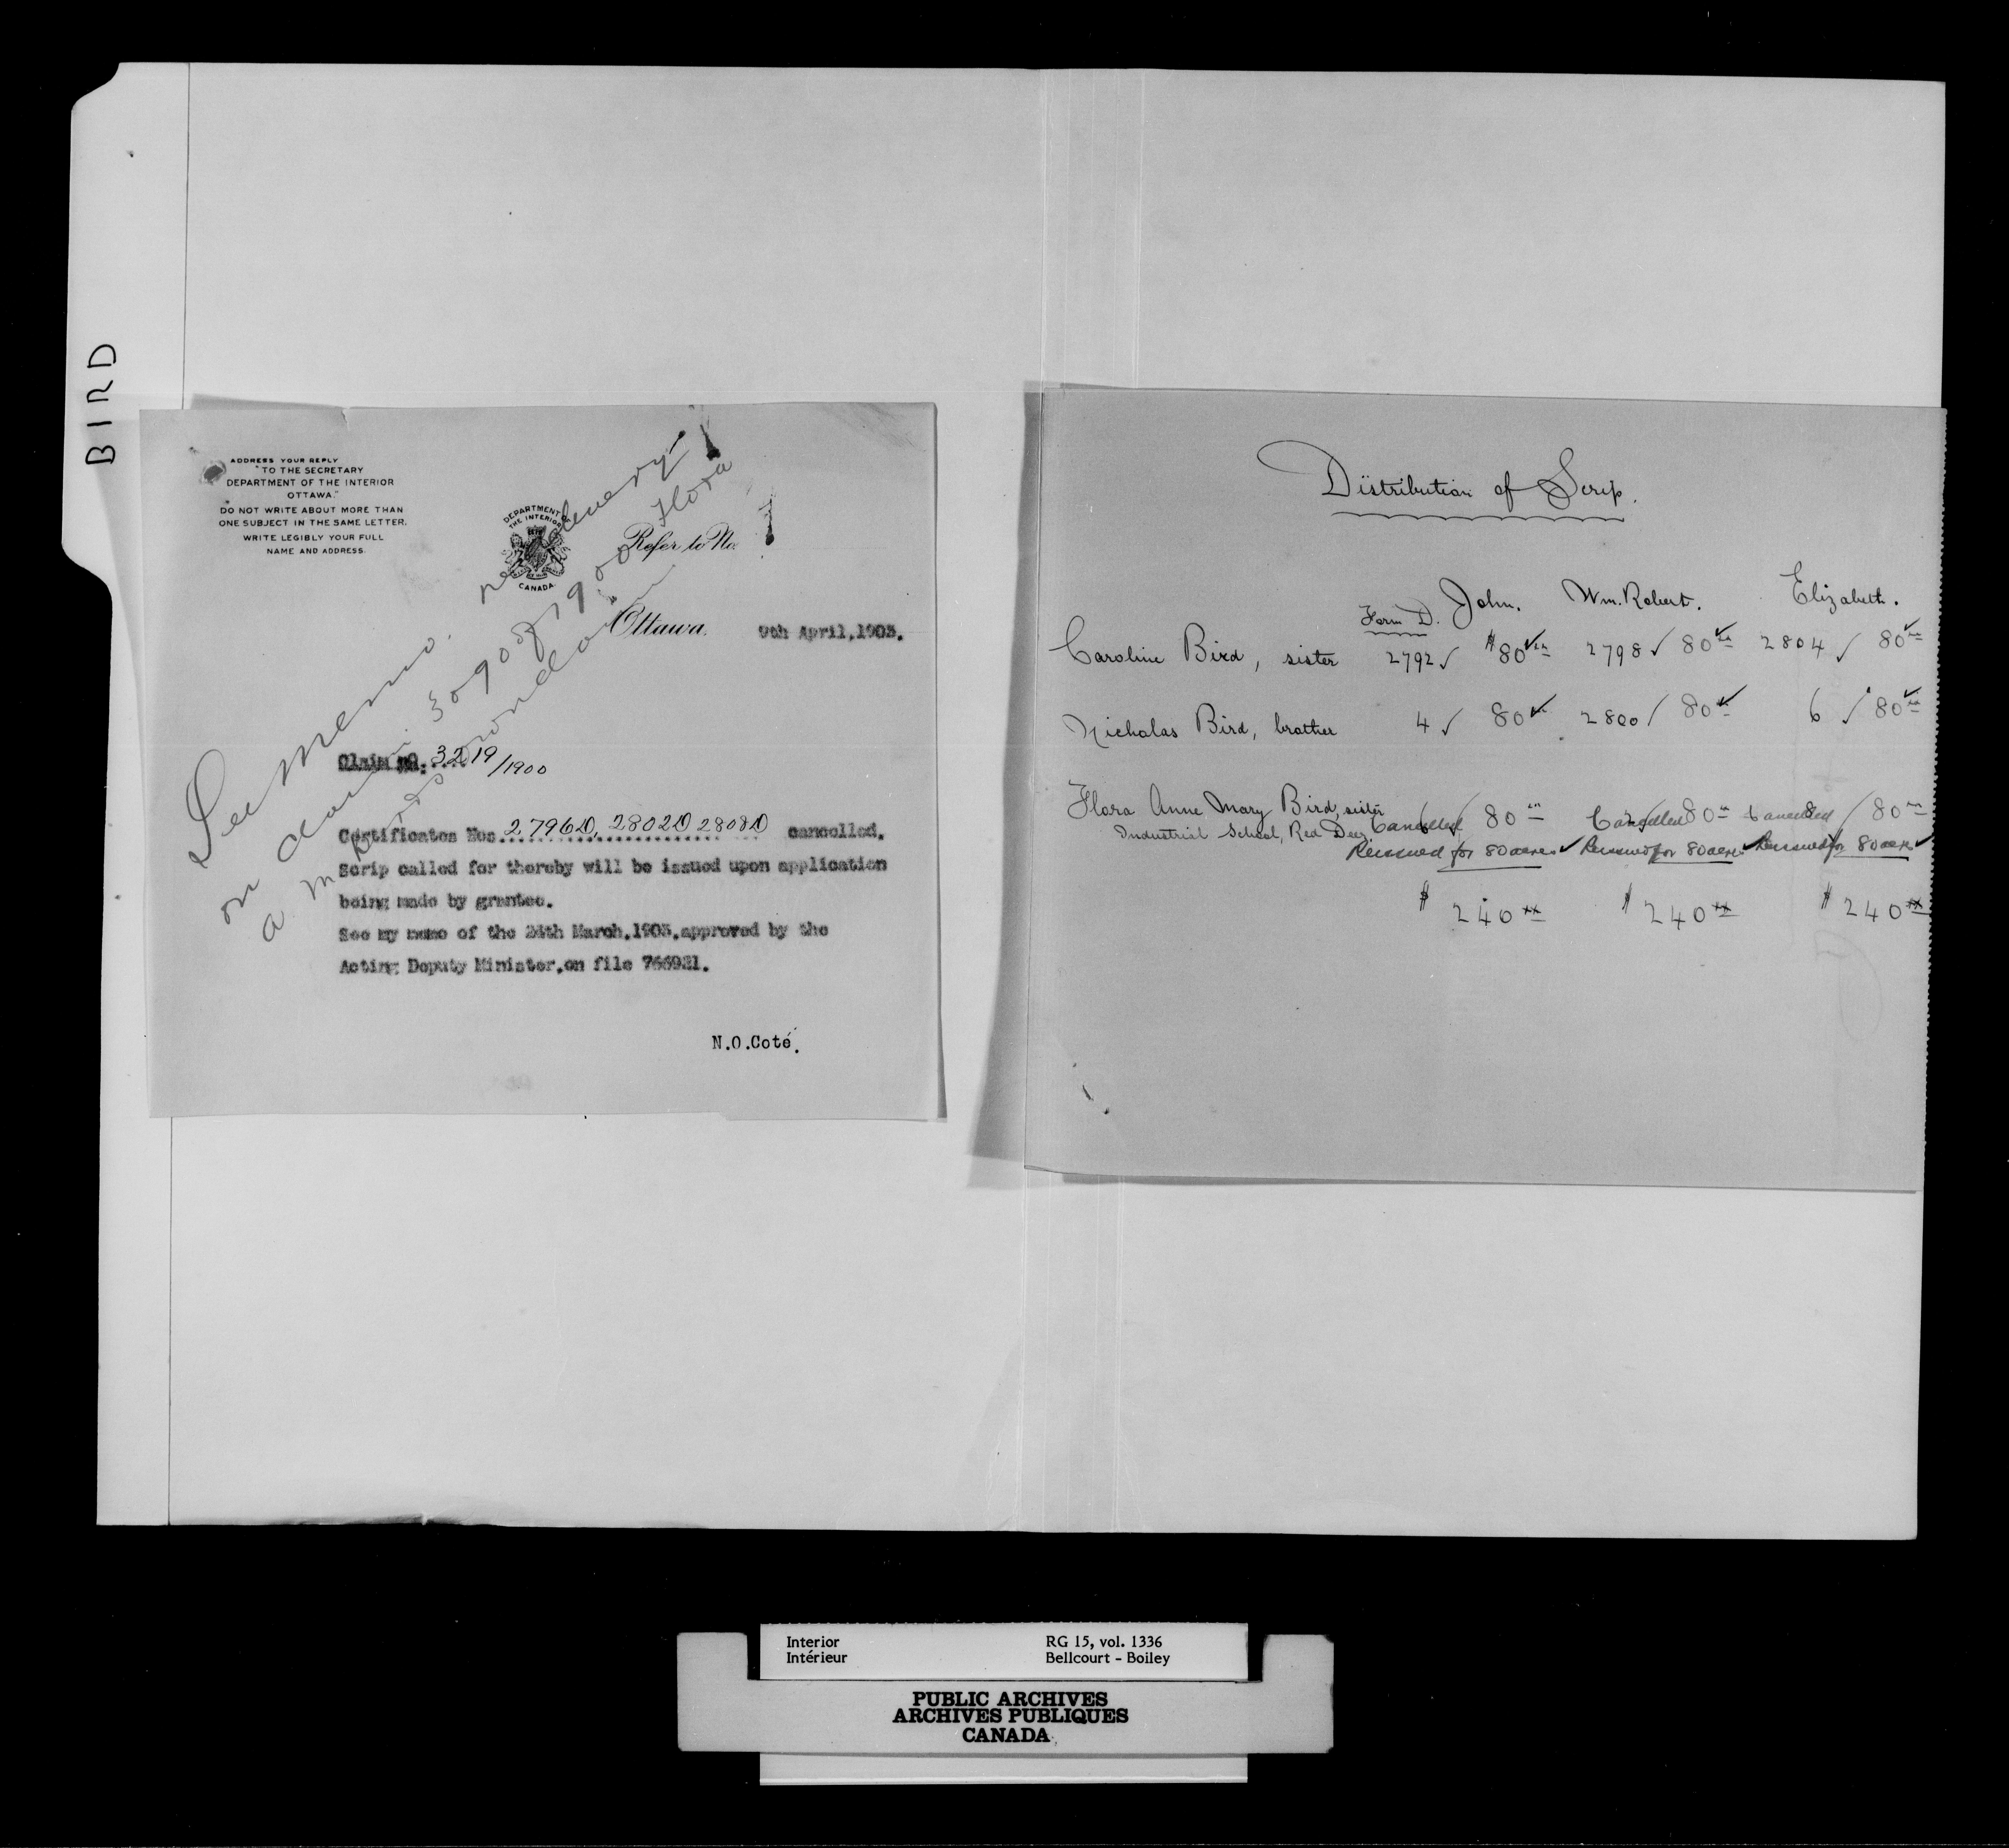 BIRD
ADDRESS YOUR REPLY
"TO THE SECRETARY
DEPARTMENT OF THE INTERIOR
OTTAWA."
DO NOT WRITE ABOUT MORE THAN
ONE SUBJECT IN THE SAME LETTER.
WRITE LEGIBLY YOUR FULL
NAME AND ADDRESS.
DEPARTMENT OF
THE INTERIOR
CANADA
Refer to No.
Ottawa, 9th April, 1903.
See memo. re delivery
on claim 3090 of 1900 Flora
a
Claim no. 3219/1900
Certificates Nos. 2796D, 2802D 2808D cancelled.
Scrip called for thereby will be issued upon application
being made by grantee.
See my memo of the 24th March, 1903, approved by the
Acting Deputy Minister, on file 766931.
N.O.Coté.
Distribution of Scrip.
Form D. John. Wm. Robert. Elizabeth.
Caroline Bird, sister 2792 ✓ $80 ✓ 2798 ✓ 80 ✓ 2804 ✓ 80 ✓
Nicholas Bird, brother 4 ✓ 80 ✓ 2800 ✓ 80 ✓ 6 ✓ 80 ✓
Flora Anne Mary Bird, sister 6 ✓ Cancelled 80 Cancelled 80 8 Cancelled ✓ 80
Industrial School, Red Deer
Reissued for 80 acres ✓ Reissued for 80 acres ✓ Reissued for 80 acres ✓
$ 240 xx $ 240 xx $ 240 xx
Interior RG 15, vol. 1336
Intérieur Bellcourt - Boiley
PUBLIC ARCHIVES
ARCHIVES PUBLIQUES
CANADA